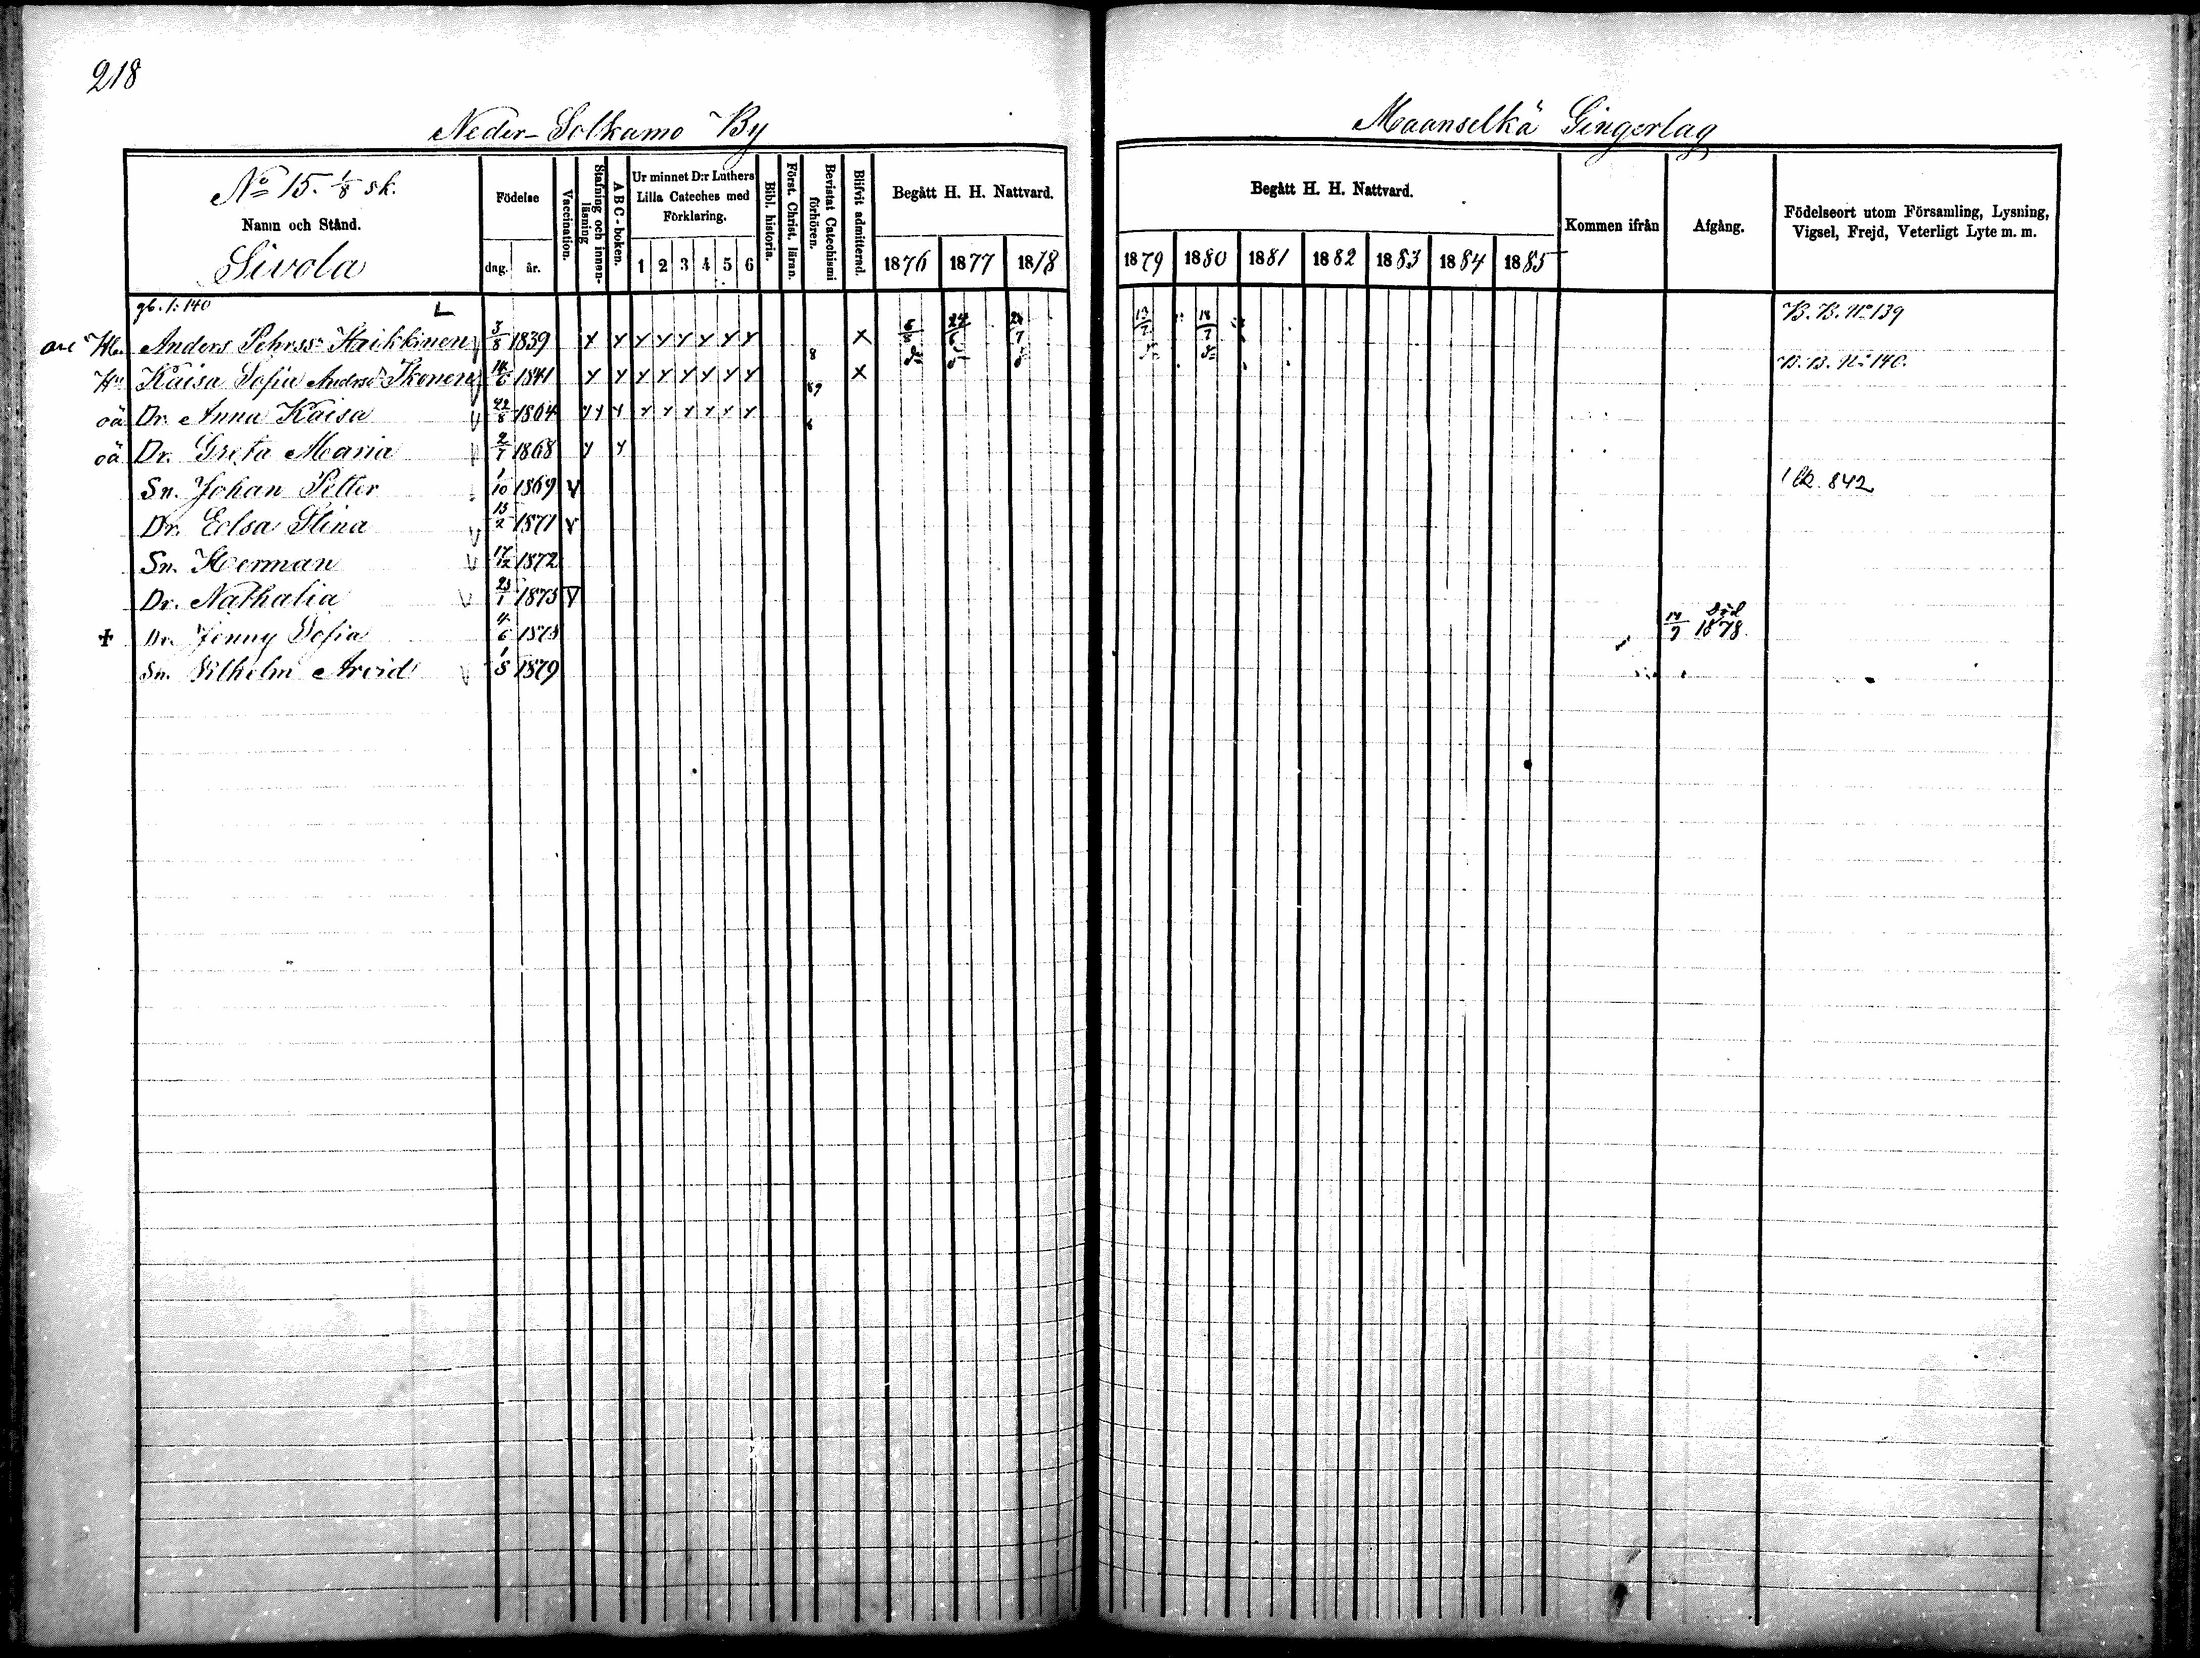 218
Neder-Solkamo By
Maanselkä Gingerlag
No 15. 1/8 sk.
Namn och Stånd.
Sivola
Födelse
dag. år.
Vaccination.
Stafning och innanläsning
ABC-boken.
Ur minnet D:r Luthers Lilla Cateches med Förklaring.
1 2 3 4 5 6
Bibl. historia.
Först. Christ. läran.
Bevistat Catechismi förhören.
Blifvit admitterad.
Begått H. H. Nattvard.
1876 1877 1878
Begått H. H. Nattvard.
1879 1880 1881 1882 1883 1884 1885
Kommen ifrån
Afgång.
Födelseort utom Församling, Lysning, Vigsel, Frejd, Veterligt Lyte m. m.
gb. 1:140
B. B. No 139
Anders Pehrss. Heikkinen 3/8 1839 Y Y Y Y Y Y Y Y X
Kaisa Sofia Andersd. Ikonen 14/6 1841 Y Y Y Y Y Y Y Y X B. B. No 140.
oä Dr. Anna Kaisa 22/8 1864 Y Y Y Y Y Y Y Y Y
oä Dr. Greta Maria 2/7 1868 Y Y
Sn. Johan Petter 1/10 1869 V 842
Dr. Eelsa Stina 13/2 1871 V
Sn. Herman 17/12 1872
Dr. Nathalia 23/1 1875 V
+ Dr. Jenny Sofia 4/6 1878 Död 14/7 1878
Sn. Vilhelm Arvid 1/8 1879